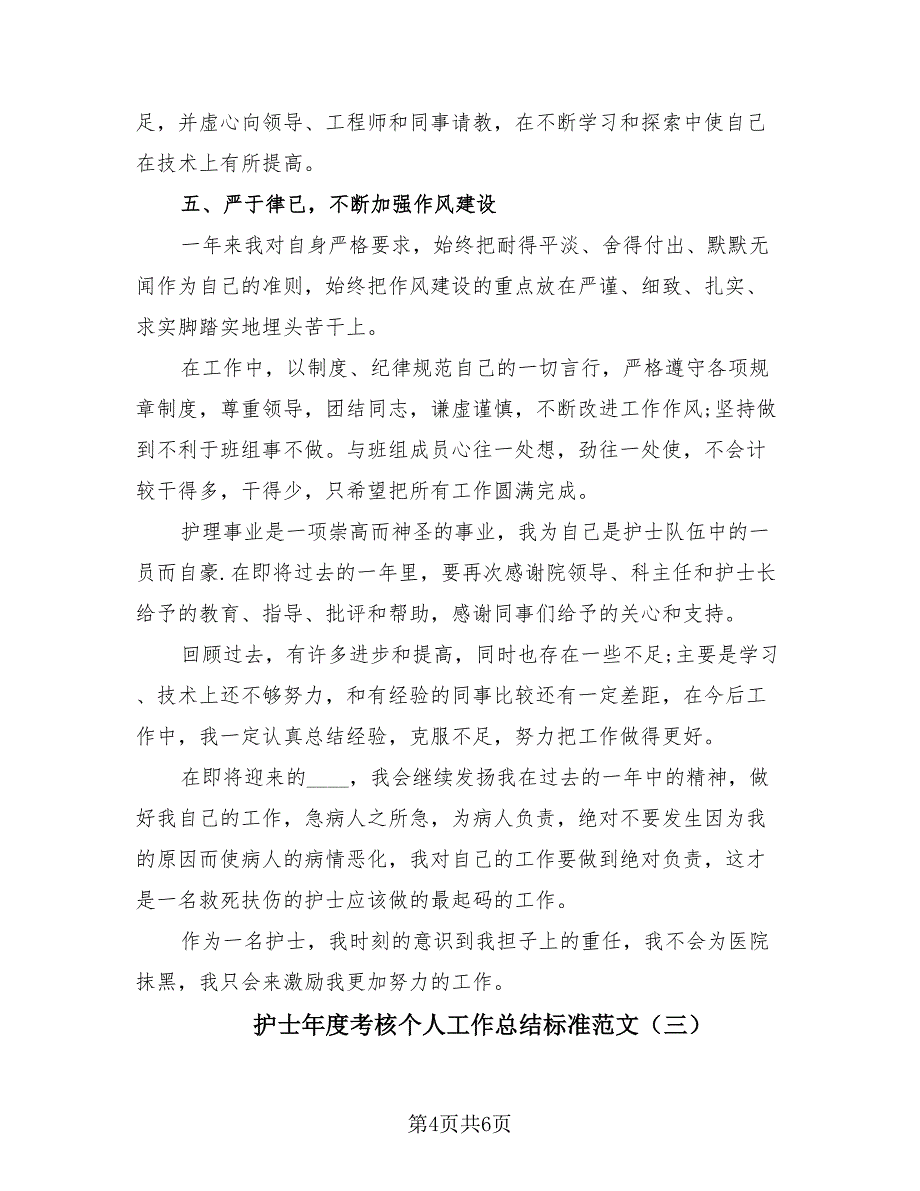 足，并虚心向领导、工程师和同事请教，在不断学习和探索中使自己
在技术上有所提高。
五、严于律已，不断加强作风建设
一年来我对自身严格要求，始终把耐得平淡、舍得付出、默默无
闻作为自己的准则，始终把作风建设的重点放在严谨、细致、扎实、
求实脚踏实地埋头苦干上。
在工作中，以制度、纪律规范自己的一切言行，严格遵守各项规
章制度，尊重领导，团结同志，谦虚谨慎，不断改进工作作风;坚持做
到不利于班组事不做。与班组成员心往一处想，劲往一处使，不会计
较干得多，干得少，只希望把所有工作圆满完成。
护理事业是一项崇高而神圣的事业，我为自己是护士队伍中的一
员而自豪.在即将过去的一年里，要再次感谢院领导、科主任和护士长
给予的教育、指导、批评和帮助，感谢同事们给予的关心和支持。
回顾过去，有许多进步和提高，同时也存在一些不足;主要是学习
、技术上还不够努力，和有经验的同事比较还有一定差距，在今后工
作中，我一定认真总结经验，克服不足，努力把工作做得更好。
在即将迎来的____，我会继续发扬我在过去的一年中的精神，做
好我自己的工作，急病人之所急，为病人负责，绝对不要发生因为我
的原因而使病人的病情恶化，我对自己的工作要做到绝对负责，这才
是一名救死扶伤的护士应该做的最起码的工作。
作为一名护士，我时刻的意识到我担子上的重任，我不会为医院
抹黑，我只会来激励我更加努力的工作。
护士年度考核个人工作总结标准范文（三）
第4页共6页